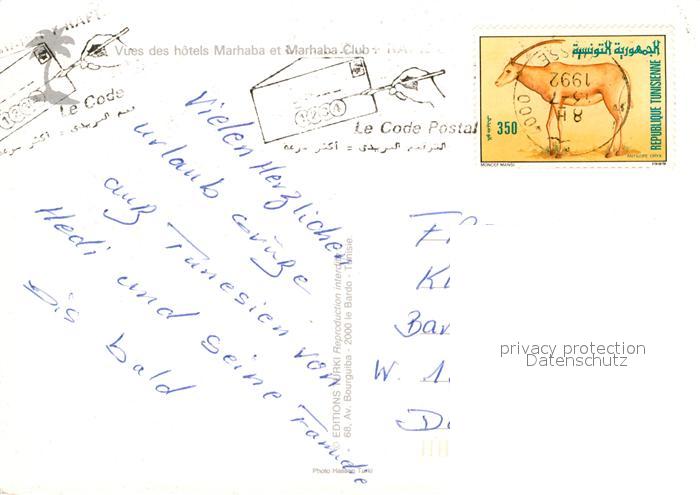 Vues des hôtels Marhaba et Marhaba Club
Le Code
Le Code Postal
الترقيم البريدى = أكثر سرعة
الجمهورية التونسية
REPUBLIQUE TUNISIENNE
350
MONCEF MANSI
ANTILOPE ORYX
SOUSSE
8H
13-7
1992
Vielen Herzlichen
urlaub grüße
auß Tunesien von
Hedi und seine Familie
Bis bald
© EDITIONS TURKI Reproduction interdite
68, Av. Bourguiba - 2000 le Bardo - Tunisie
Photo Hassen Turki
W. 1
privacy protection
Datenschutz